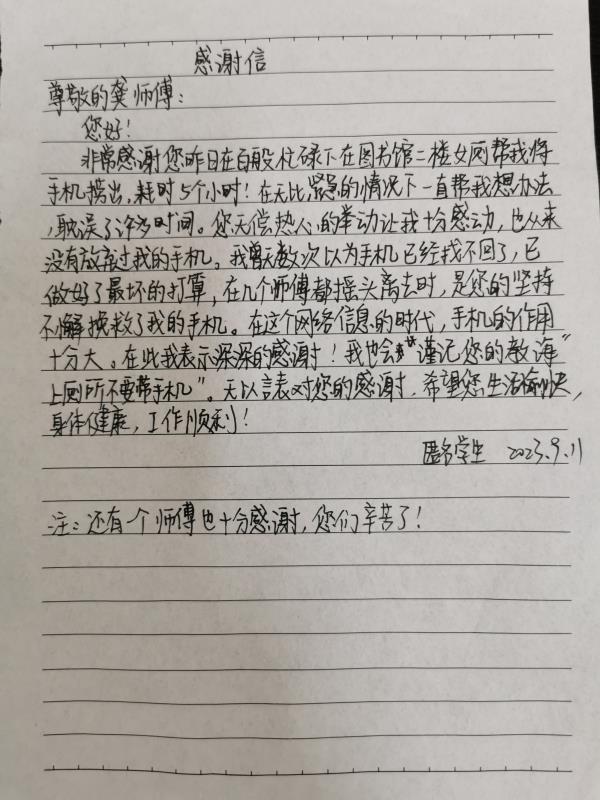 感谢信
尊敬的龚师傅：
您好！
非常感谢您昨日在百般忙碌下在图书馆二楼女厕帮我将
手机捞出，耗时5个小时！在无比紧急的情况下一直帮我想办法
，耽误了许多时间。您无偿热心的举动让我十分感动，也从来
没有放弃过我的手机。我曾无数次以为手机已经找不回了，已
做好了最坏的打算，在几个师傅都摇头离去时，是您的坚持
不懈挽救了我的手机。在这个网络信息的时代，手机的作用
十分大。在此我表示深深的感谢！我也会"谨记您的教诲"
上厕所不要带手机"。无以言表对您的感谢，希望您生活愉快，
身体健康，工作顺利！
匿名学生 2023.9.11
注：还有一个师傅也十分感谢，您们辛苦了！